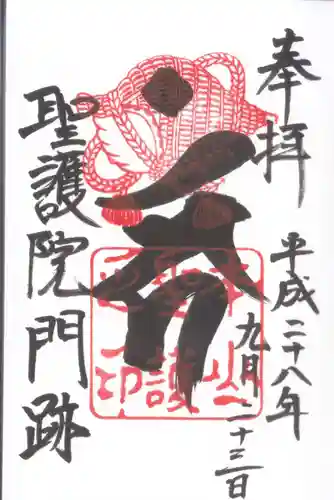 奉拝
平成二十八年
九月二十三日
聖護院門跡